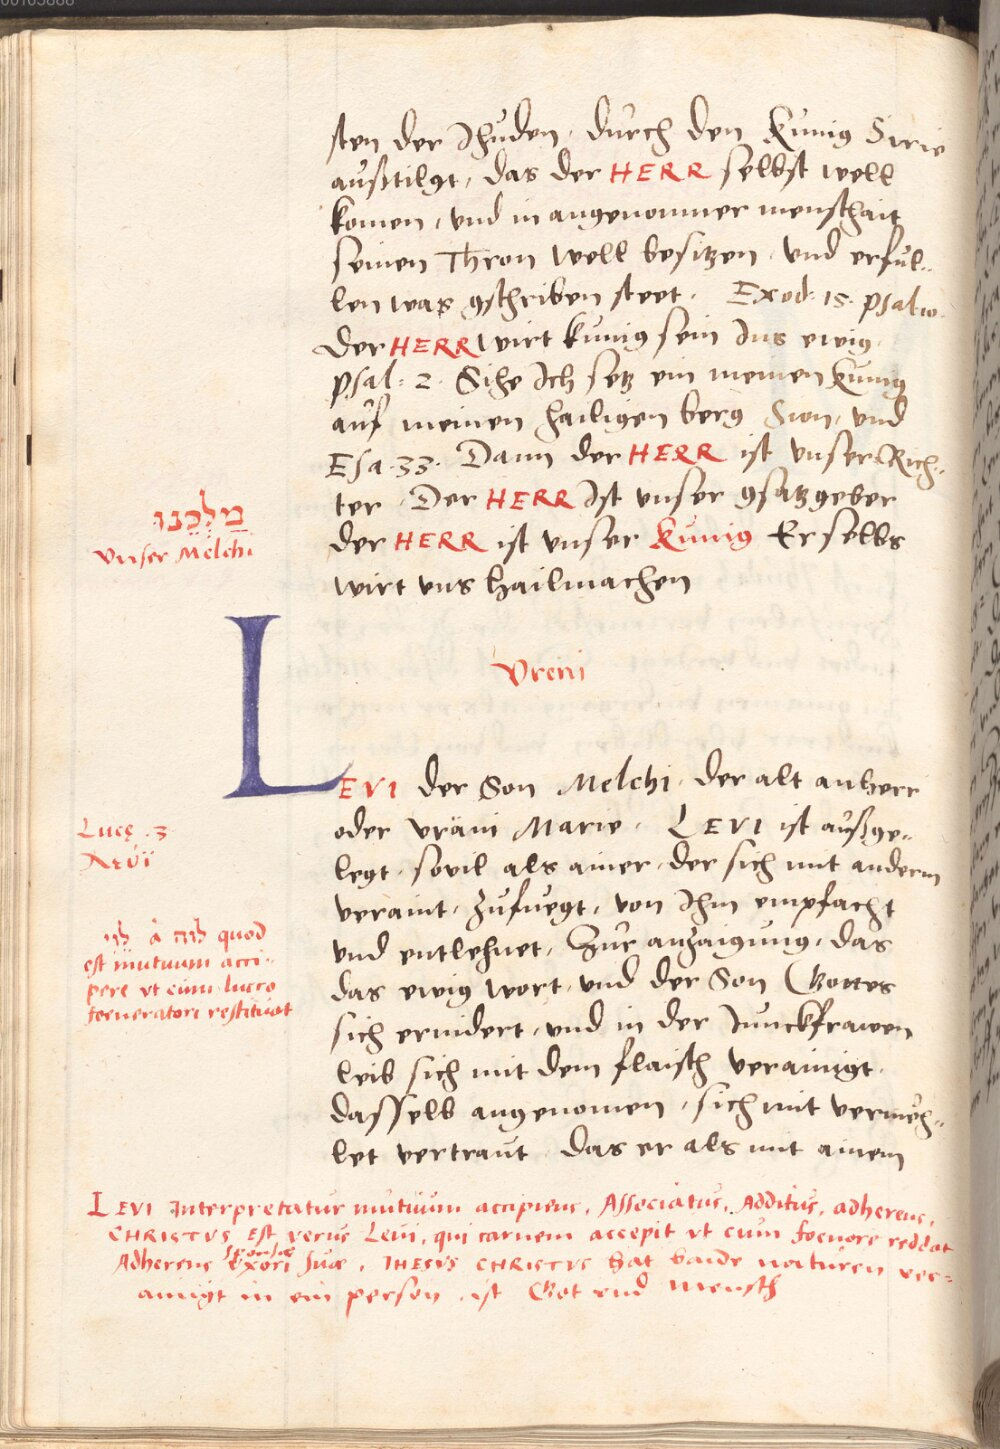 00103888
sten der Jhuden, durch den Kunig Sirie
außtilgt, das der HERR selbst well
komen, vnd in angenommer menschait
seinen Thron well besitzen, vnd erful-
len was gschriben steet. Exod: 15. psal 10.
Der HERR wirt kunig sein Ins ewig.
psal: 2. Sihe Ich setz ein meinen Kunig
auf meinen hailigen berg Sion, vnd
Esa. 33. Dann der HERR ist vnser Rich-
ter, Der HERR Ist vnser gsatzgeber
der HERR ist vnser Kunig Er selbs
wirt vns hailmachen
מַלְכֵּנוּ
Vnser Melchi
Vreni
LEVI der Son Melchi, der alt anherr
oder vräni Marie, LEVI ist außge-
legt, sovil als ainer, der sich mit anderm
veraint, zufuegt, von Ihm empfacht
vnd entlehnet, Zur anzaigung, das
das ewig wort, vnd der Son Gottes
sich ernidert, vnd in der Junckfrawen
leib sich mit dem flaisch verainigt,
dasselb angenomen, sich mit vermeh-
let vertraut, das er als mit ainem
Lucę. 3
Λευϊ
לוי à לוה quod
est mutuum acci-
pere vt cum lucro
foeneratori restituat
LEVI Interpretatur mutuum accipiens, Associatus, Additus, adherens,
CHRISTVS Est verus Leui, qui carnem accepit vt cum foenore reddat
Sponsæ
Adherens Vxori suæ, IHESVS CHRISTVS hat baide naturen ver-
ainigt in ein person, ist Got vnd Mensch